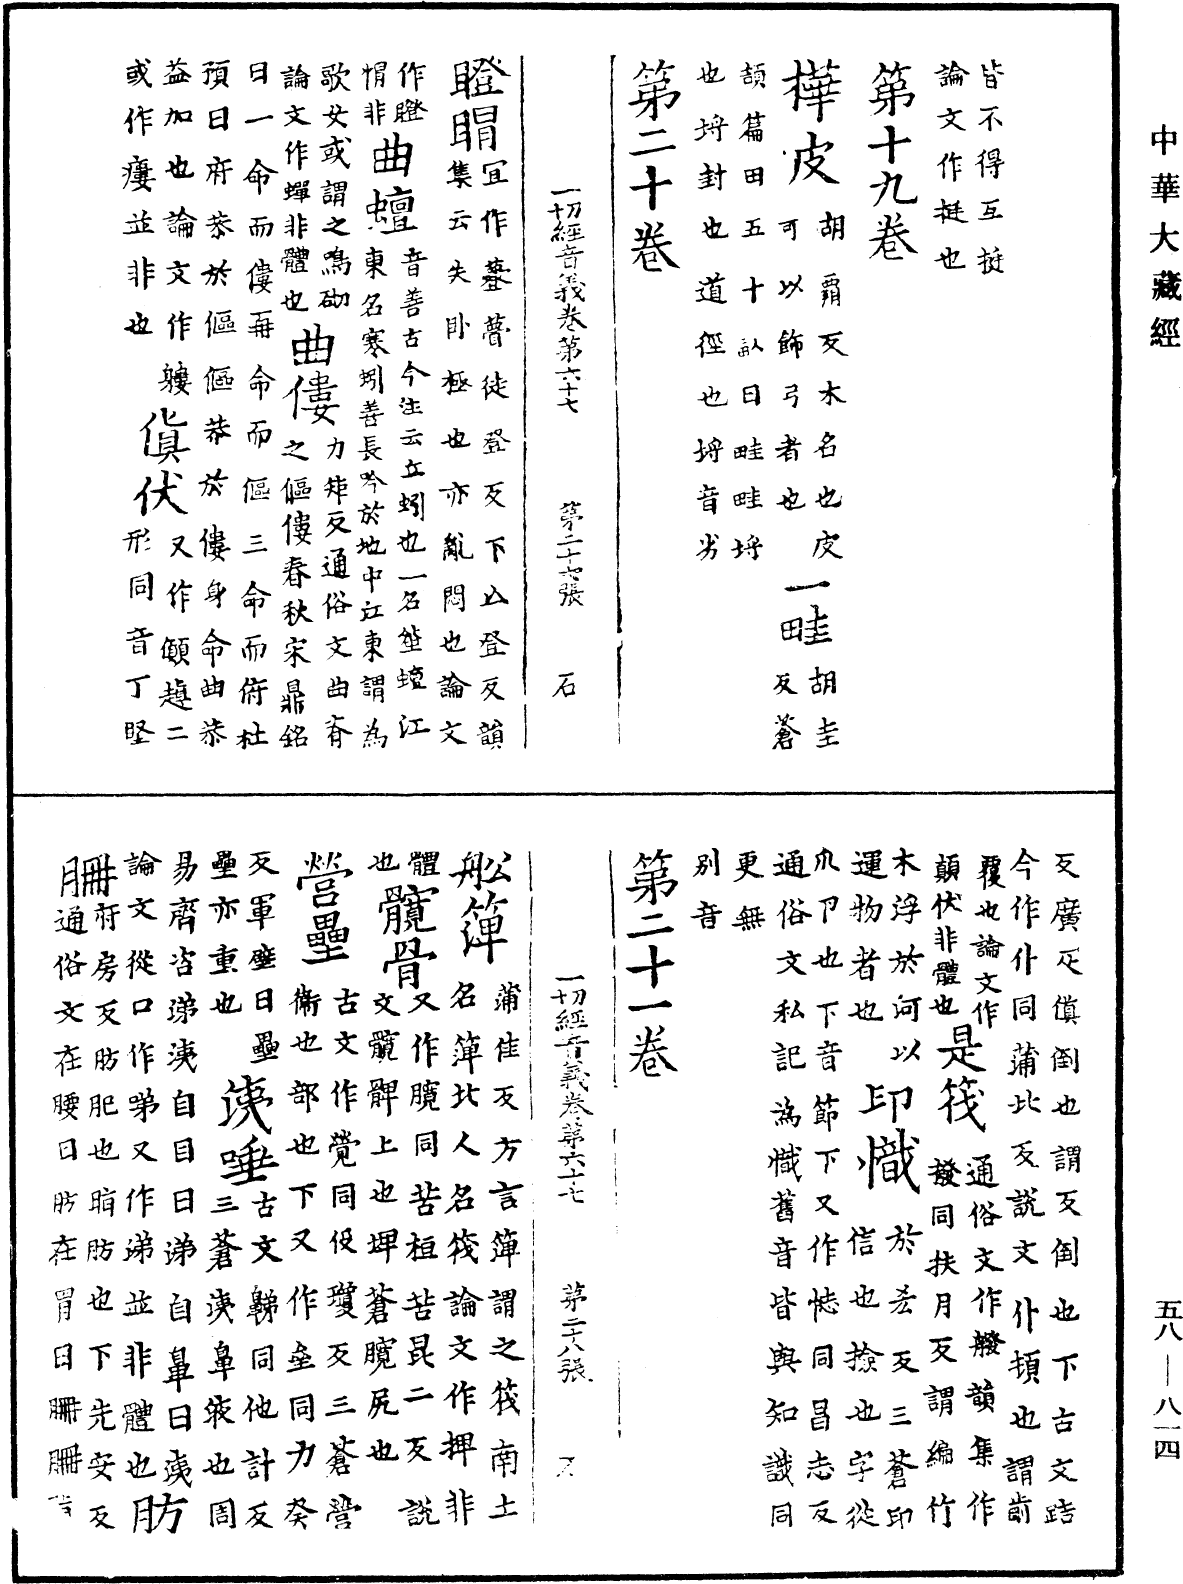 中華大藏經
皆不得互挺
論文作挺也
第十九卷
樺皮胡霸反木名也皮可以飾弓者也一畦胡圭反蒼
頡篇田五十畝曰畦畦埒
也埒封也道徑也埒音劣
第二十卷
一切經音義卷第六十七 第二十七張 石
瞪瞢宜作䒢瞢徒登反下亡登反韻集云失臥極也亦亂悶也論文
作瞪𢛴非曲蟺音善古今注云丘蚓也一名𧊔蟺江東名寒蚓善長吟於地中江東謂為
歌女或謂之鳴砌論文作蟬非體也曲僂力矩反通俗文曲脊之傴僂春秋宋鼎銘
曰一命而僂再命而傴三命而俯杜
預曰府恭於傴傴恭於僂身命曲恭
益加也論文作軁或作瘻並非也
傎伏又作顛趚二形同音丁堅
反廣疋傎倒也謂反倒也下古文踣
今作仆同蒲北反說文仆頓也謂前
覆也論文作顛伏非體也是筏通俗文作䑔韻集作撥同扶月反謂編竹
木浮於河以運物者也印幟於刃反三蒼印信也撿也字從
爪卩也下音節下又作㡵同昌志反
通俗文私記為幟舊音皆與知識同
更無
別音
第二十一卷
一切經音義卷第六十七 第二十八張 石
舩簰蒲佳反方言簰謂之筏南土名簰北人名筏論文作押非
體也髖骨又作臗同苦桓苦昆二反說文髖髀上也埤蒼臗尻也
營壘古文作覮同役瓊反三蒼營衛也部也下又作垒同力癸
反軍壁曰壘壘亦重也洟唾古文鮷同他計反三蒼洟鼻液也周
易齎咨涕洟自目曰涕自鼻曰洟
論文從口作㖒又作涕並非體也肪
𦚻府房反肪肥也脂肪也下先安反
通俗文在腰曰肪在胃曰𦚻𦚻
五八—八一四